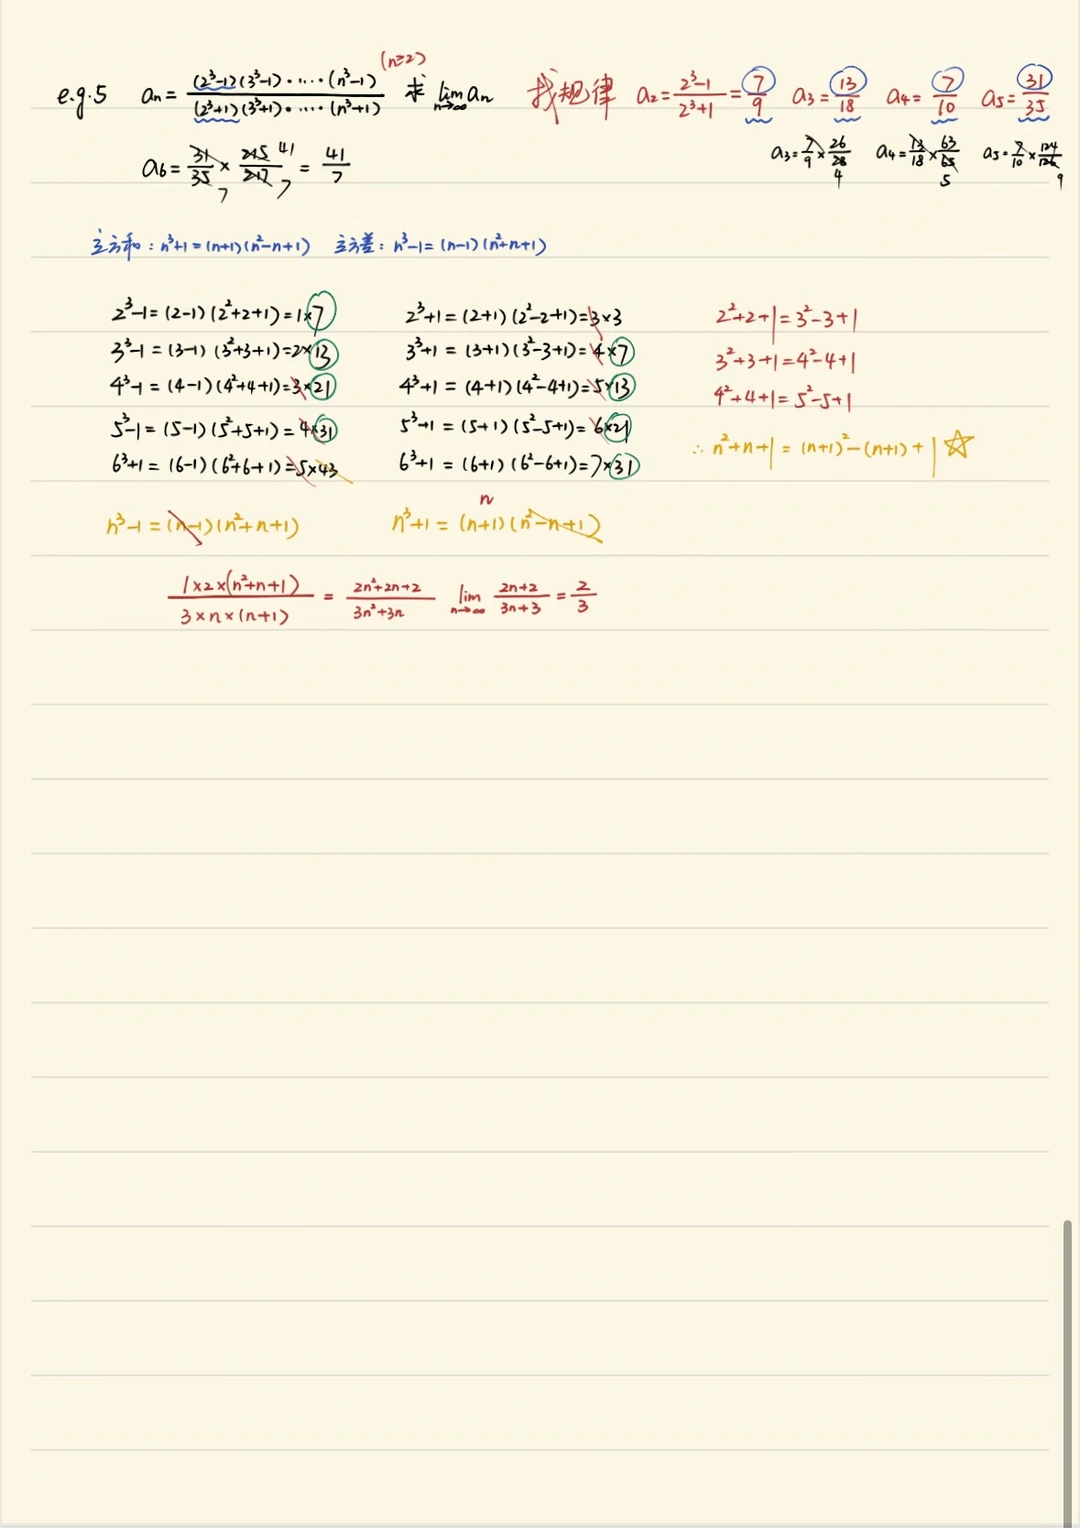 e.g.5 aₙ = (2³-1)(3³-1)·····(n³-1) / (2³+1)(3³+1)·····(n³+1) (n≥2) 求 lim n→∞ aₙ 找规律 a₂ = 2³-1 / 2³+1 = 7/9 a₃ = 13/18 a₄ = 7/10 a₅ = 31/35
a₃ = 7/9 × 26/28 4 a₄ = 13/18 × 63/65 5 a₅ = 7/10 × 124/126 9
a₆ = 31/35 7 × 215/217 41 7 = 41/7
立方和：n³+1 = (n+1)(n²-n+1) 立方差：n³-1 = (n-1)(n²+n+1)
2³-1 = (2-1)(2²+2+1) = 1×7 2³+1 = (2+1)(2²-2+1) = 3×3 2²+2+1 = 3²-3+1
3³-1 = (3-1)(3²+3+1) = 2×13 3³+1 = (3+1)(3²-3+1) = 4×7 3²+3+1 = 4²-4+1
4³-1 = (4-1)(4²+4+1) = 3×21 4³+1 = (4+1)(4²-4+1) = 5×13 4²+4+1 = 5²-5+1
5³-1 = (5-1)(5²+5+1) = 4×31 5³+1 = (5+1)(5²-5+1) = 6×21 ∴ n²+n+1 = (n+1)²-(n+1)+1 ☆
6³+1 = (6-1)(6²+6+1) = 5×43 6³+1 = (6+1)(6²-6+1) = 7×31
n
n³-1 = (n-1)(n²+n+1) n³+1 = (n+1)(n²-n+1)
1×2×(n²+n+1) / 3×n×(n+1) = 2n²+2n+2 / 3n²+3n lim n→∞ 2n+2 / 3n+3 = 2/3